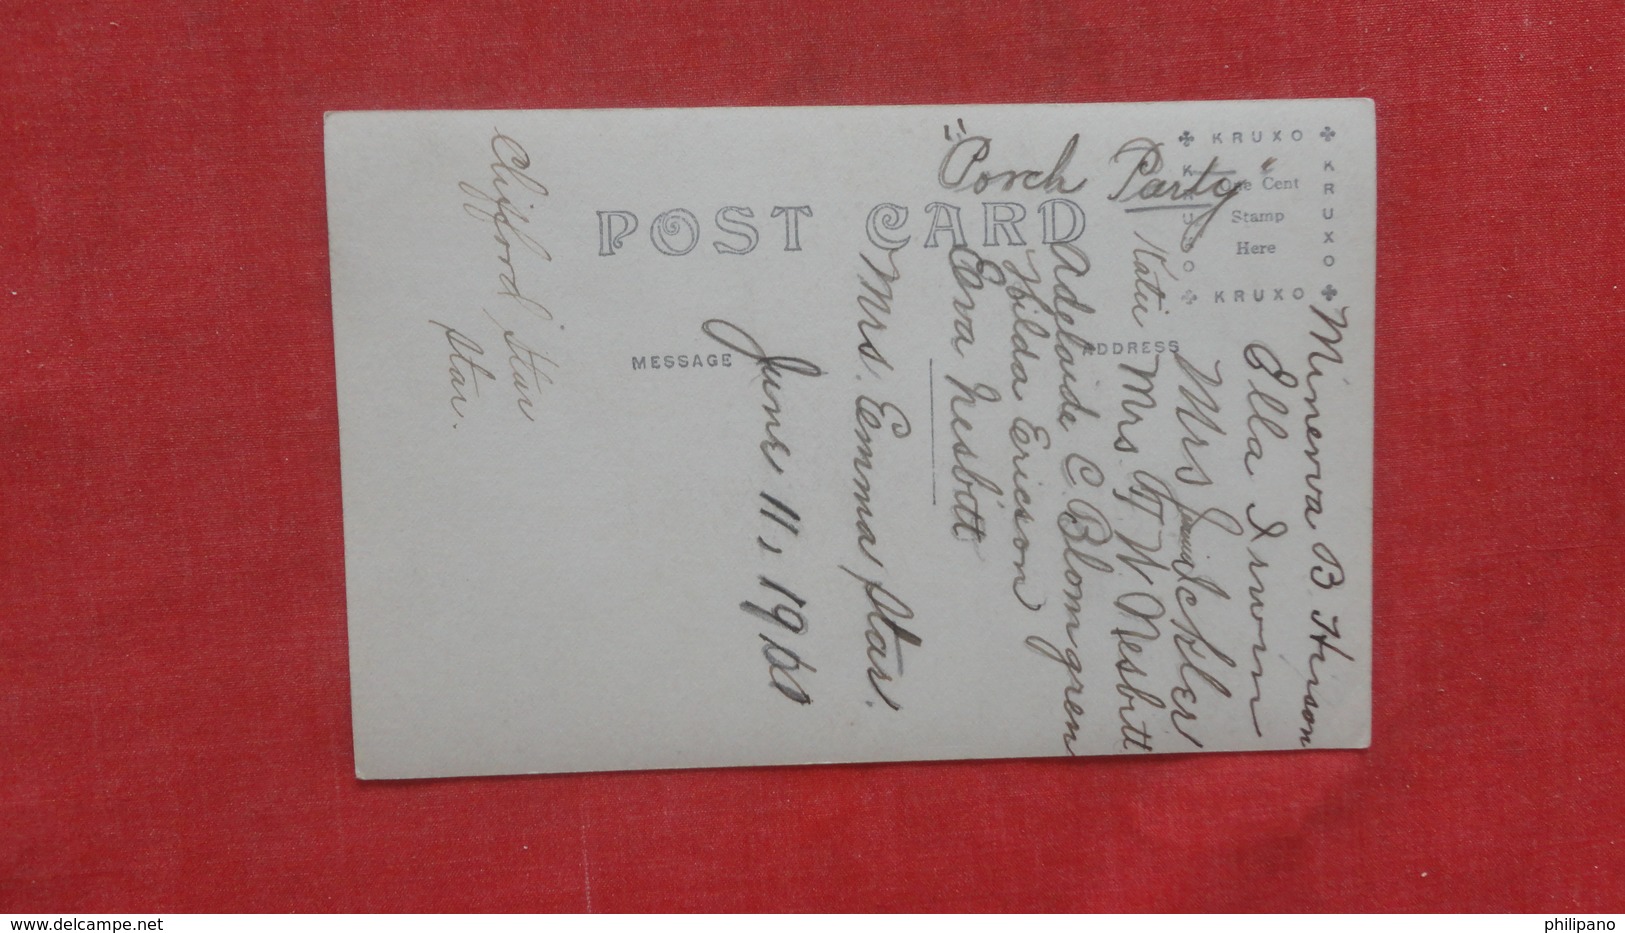 "Porch Party"
POST CARD
KRUXO
KRUXO
KRUXO
KRUXO
One Cent
Stamp
Here
MESSAGE
ADDRESS
Minerva B. Hinson
Ella Irwin
Mrs
Katie Mrs. W. Nesbitt
Adelaide C. Blomgren
Hilda Ericson
Eava Nesbitt
Mrs. Emma Star.
June 11, 19
Clifford Star
Star.
www.delcampe.net
philipano